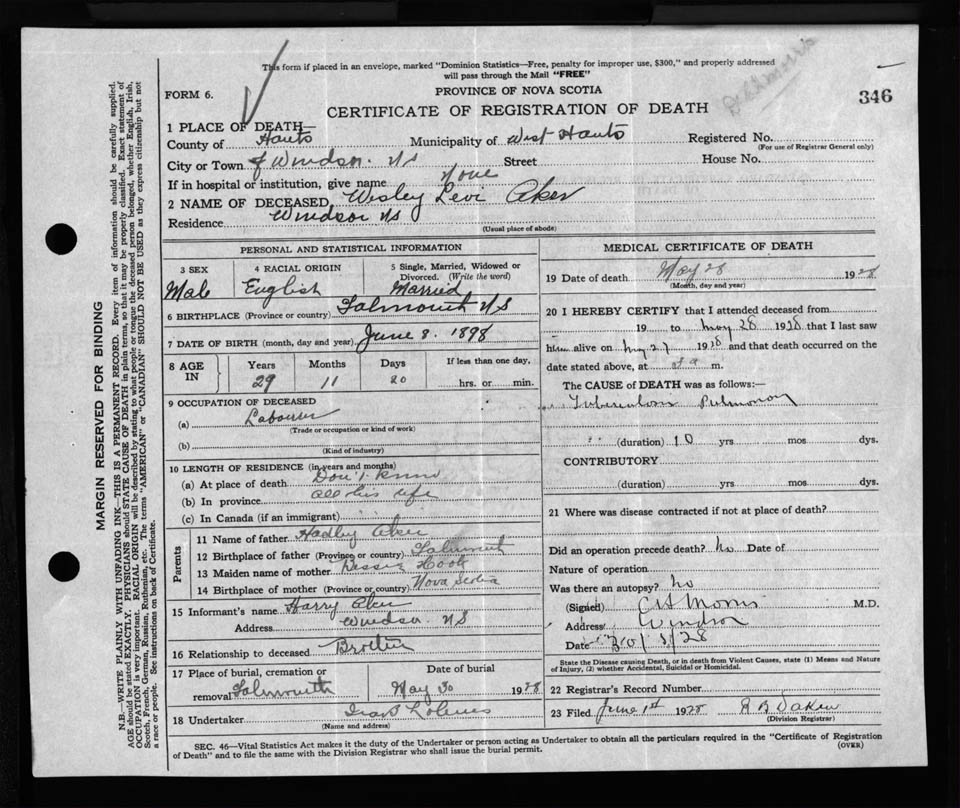 This form if placed in an envelope, marked "Dominion Statistics—Free, penalty for improper use, $300," and properly addressed
will pass through the Mail "FREE"
FORM 6.
PROVINCE OF NOVA SCOTIA
346
CERTIFICATE OF REGISTRATION OF DEATH
1 PLACE OF DEATH—
County of Hants Municipality of West Hants Registered No.
(For use of Registrar General only)
City or Town of Windsor. NS Street House No.
If in hospital or institution, give name None
2 NAME OF DECEASED Wesley Levi Aker
Residence Windsor NS
(Usual place of abode)
PERSONAL AND STATISTICAL INFORMATION
3 SEX 4 RACIAL ORIGIN 5 Single, Married, Widowed or
Divorced. (Write the word)
Male English Married
6 BIRTHPLACE (Province or country) Falmouth NS
7 DATE OF BIRTH (month, day and year) June 8. 1898
8 AGE IN Years Months Days If less than one day,
29 11 20 hrs. or min.
9 OCCUPATION OF DECEASED
(a) Labourer
(Trade or occupation or kind of work)
(b)
(Kind of industry)
10 LENGTH OF RESIDENCE (in years and months)
(a) At place of death Don't know
(b) In province all his life
(c) In Canada (if an immigrant)
Parents
11 Name of father Hadley Aker
12 Birthplace of father (Province or country) Falmouth
13 Maiden name of mother Hook
14 Birthplace of mother (Province or country) Nova Scotia
15 Informant's name Harry Aker
Address Windsor NS
16 Relationship to deceased Brother
17 Place of burial, cremation or Date of burial
removal Falmouth May 30 1928
18 Undertaker
(Name and address)
MEDICAL CERTIFICATE OF DEATH
19 Date of death May 28 1928
(Month, day and year)
20 I HEREBY CERTIFY that I attended deceased from
19 to May 28 1928 that I last saw
him alive on May 27 1928 and that death occurred on the
date stated above, at m.
The CAUSE of DEATH was as follows:—
Tuberculosis Pulmonary
(duration) 10 yrs mos dys.
CONTRIBUTORY
(duration) yrs mos dys.
21 Where was disease contracted if not at place of death?
Did an operation precede death? no Date of
Nature of operation
Was there an autopsy? no
(Signed) C H Morris M.D.
Address Windsor
Date 30/5/28
State the Disease causing Death, or in death from Violent Causes, state (1) Means and Nature
of Injury, (2) whether Accidental, Suicidal or Homicidal.
22 Registrar's Record Number
23 Filed June 1st 1928 R B Daken
(Division Registrar)
SEC. 46—Vital Statistics Act makes it the duty of the Undertaker or person acting as Undertaker to obtain all the particulars required in the "Certificate of Registration
of Death" and to file the same with the Division Registrar who shall issue the burial permit. (OVER)
MARGIN RESERVED FOR BINDING
N.B.—WRITE PLAINLY WITH UNFADING INK—THIS IS A PERMANENT RECORD. Every item of information should be carefully supplied.
AGE should be stated EXACTLY. PHYSICIANS should STATE CAUSE OF DEATH in plain terms, so that it may be properly classified. Exact statement of
OCCUPATION is very important. RACIAL ORIGIN will be described by stating to what people or tongue the deceased person belonged, whether English, Irish,
Scotch, French, German, Russian, Ruthenian, etc. The terms "AMERICAN" or "CANADIAN" SHOULD NOT BE USED as they express citizenship but not
a race or people. See instructions on back of Certificate.